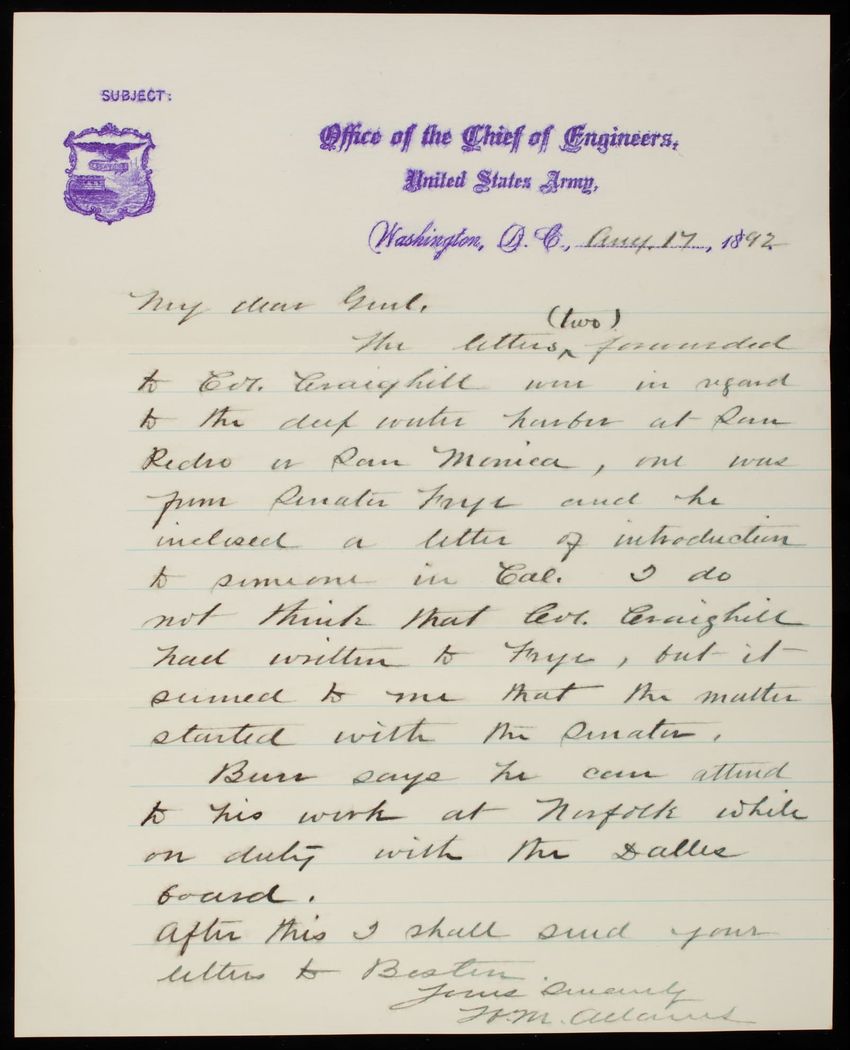 SUBJECT:
Office of the Chief of Engineers,
United States Army,
Washington, D. C., Aug. 17, 1892
My dear Genl.
(two)
The letters ^ forwarded
to Col. Craighill were in regard
to the deep water harbor at San
Pedro or San Monica, one was
from Senator Frye and he
inclosed a letter of introduction
to someone in Cal. I do
not think that Col. Craighill
had written to Frye, but it
seemed to me that the matter
started with the Senator.
Burr says he can attend
to his work at Norfolk while
on duty with the Dalles
board.
After this I shall send your
letters to Boston.
Yours Sincerely
H.M. Adams